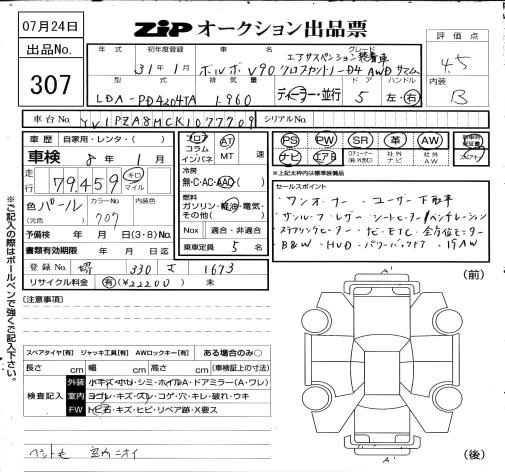 07月24日
ZIP オークション出品票
評価点
4.5
出品No.
307
年式 初年度登録 車名 グレード
31年1月 ボルボ V90 クロスカントリーD4 AWD サマム
エアサスペンション装着車
型式 排気量 ドア ハンドル
LDA-PD4204TA 1,960 ディーラー・並行 5 左・右
内装
B
車台No. YV1PZA8MCK1077709 シリアルNo.
車歴 自家用・レンタ・( )
車検 8年1月
走行 79,459 キロ マイル
色 パール カラーNo. 内装色
(元色) 707
予備検 年 月 日(3・8)No.
書類有効期限 年 月 日迄
登録No. 堺 330 1673
リサイクル料金 有(¥22200) 未
フロア コラム インパネ
AT MT 速
冷房
無・C・AC・AAC・( )
燃料
ガソリン・軽油・電気・その他( )
Nox 適合・非適合
乗車定員 5 名
PS PW SR 革 AW
ナビ エアB 社外ナビ 社外AW
※上記太枠内は標準装備品
セールスポイント
・ワンオーナー ・ユーザー下取車
・サンルーフ・レザーシートヒーター/ベンチレーション
・ステアリングヒーター・ナビ・ETC・全方位モニター
・B&W・HUD・パワーバックドア・19AW
※ご記入の際はボールペンで強くご記入下さい。
(注意事項)
(前)
A'
スペアタイヤ[有] ジャッキ工具[有] AWロックキー[有] ある場合のみ○
長さ cm 幅 cm 高さ cm (車検証上の寸法)
検査記入
外装 小キズ・寸り・シミ・ホイルA・ドアミラー(A・ワレ)
室内 ヨゴレ・キズ・スレ・コゲ・穴・キレ・破れ・ウキ
FW トビ石・キズ・ヒビ・リペア跡・X要ス
A'
(後)
ペット毛 室内ニオイ